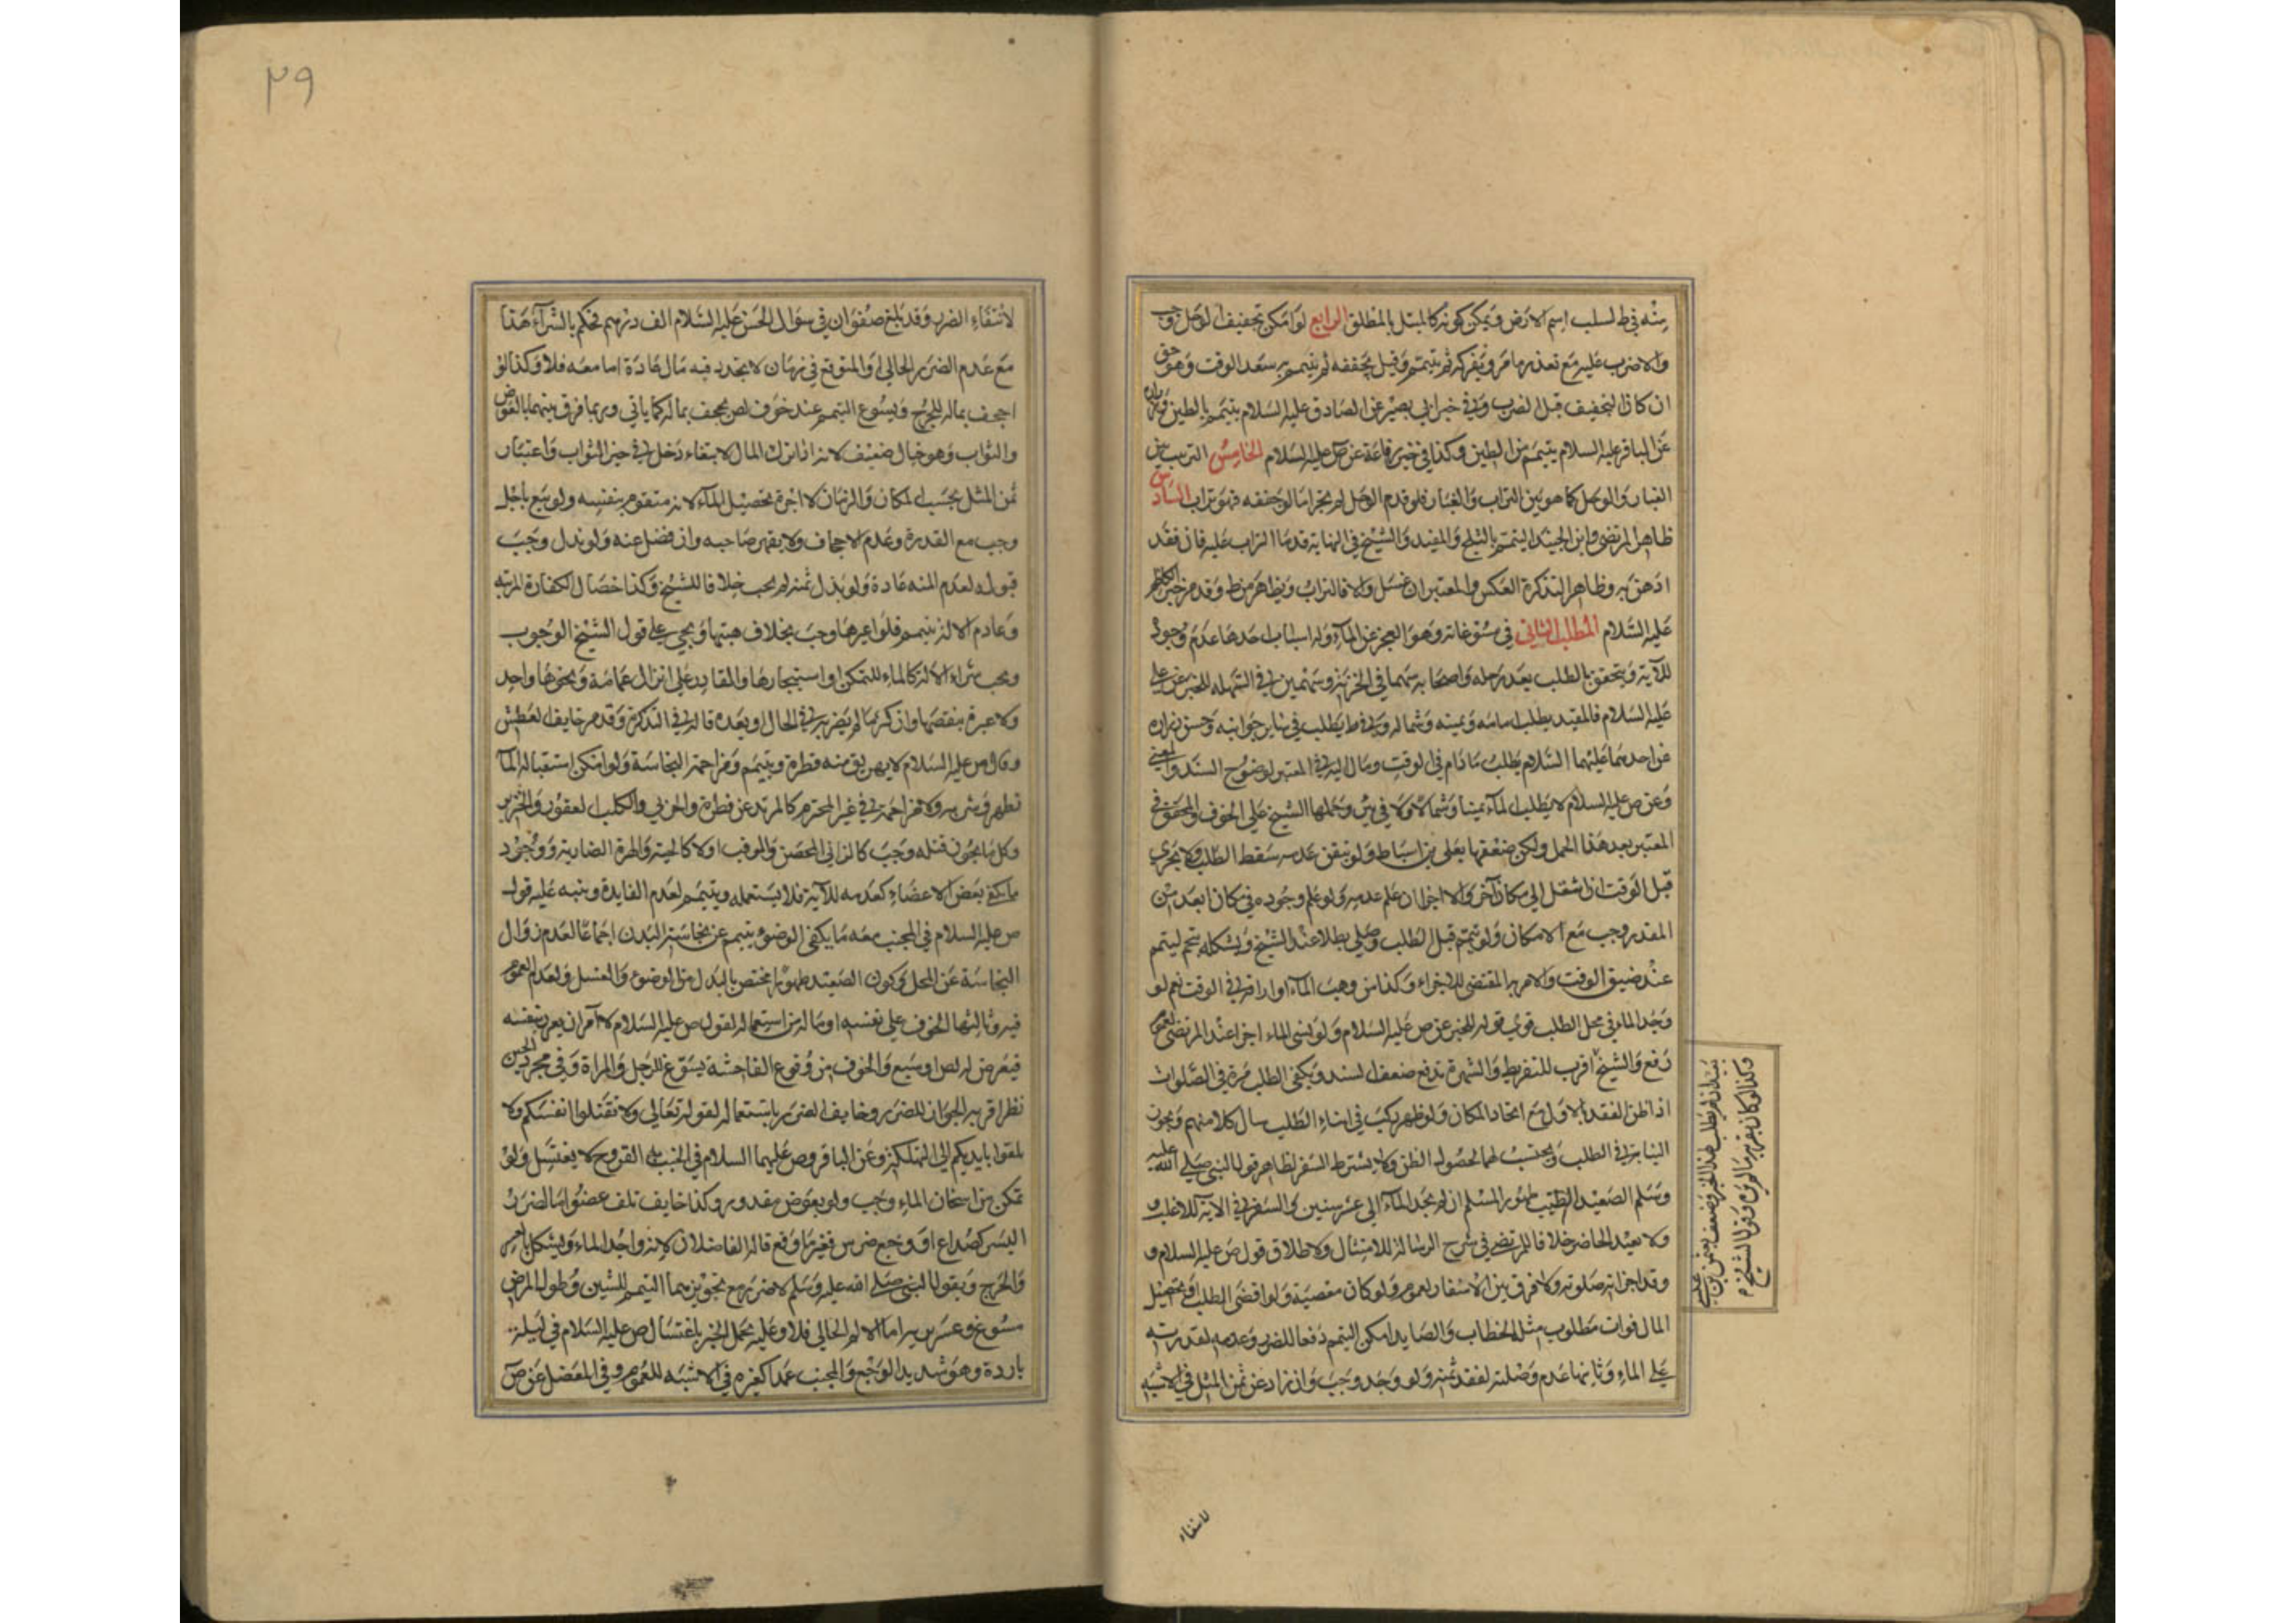 منه في ط لسلب اسم الارض ويمكن كونه كالمبتل بالمطلق الرابع لو امكن تجفيف الوحل وجب
والا ضرب عليه مع تعذر ما مر ويفركه ثم يتيمم وقيل يجففه ثم يتيمم به سعد الوقت وهو حق
ان كان التجفيف قبل الضرب وفي خبر ابي بصير عن الصادق عليه السلام يتيمم بالطين
عن الباقر عليه السلام يتيمم من الطين وكذا في خبر رفاعة عن ص عليه السلام الخامس الترتيب بين
الغبار والوحل كما هو بين التراب والغبار فلو قدم الوحل لم يجز اما لو جففه فهو تراب السادس
ظاهر المرتضى وابن الجنيد التيمم بالثلج والمفيد والشيخ في النهاية قدما التراب عليه فان فقد
ادهن به وظاهر التذكرة العكس والمعتبر ان غسل والا فالتراب ويظاهر من ط وقد مر خبر الكاظم
عليه السلام المطلب الثاني في مسوغاته وهو العجز عن الماء وله اسباب احدها عدم وجوده
للآية ويتحقق بالطلب بعد رحله واصحابه سهما في الحزنة وسهمين في السهلة للخبر عن علي
عليه السلام فالمفيد يطلب امامه ويمينه وشماله وفي ط يطلب في ساير جوانبه وحسن زرارة
عن احدهما عليهما السلام يطلب ما دام في الوقت ومال اليه في المعتبر لوضوح السند والمعنى
وعن ص عليه السلام لا يطلب الماء يمينا وشمالا ولا في بئر وحملها الشيخ على الخوف والمحقق في
المعتبر بعد هذا الحمل ولكن ضعفها بعلي بن اسباط ولو تيقن عدمه سقط الطلب ولا يجزي
قبل الوقت اذا انتقل الى مكان آخر والا اجزا ان علم عدمه ولو علم وجوده في مكان ابعد من
المقدر وجب مع الامكان ولو تيمم قبل الطلب وصلى بطلا عند الشيخ ويشكله تحتم التيمم
عند ضيق الوقت والامر به المقتضي للاجزاء وكذا من وهب الماء او اراقه في الوقت نعم لو
وجد الماء في محل الطلب قوي قوله للخبر عن ص عليه السلام ولو نسي الماء اجزا عند المرتضى لعموم
رفع والشيخ اقرب للتفريط والشهرة تدفع ضعف السند ويكفي الطلب مرة في الصلوات
اذا ظن الفقد بالاول مع اتحاد المكان ولو ظهر ركب في اثناء الطلب سال كلا منهم ويجوز
النيابة في الطلب ويحتسب لهما لحصول الظن ولا يشترط السفر لظاهر قول النبي صلى الله عليه
وسلم الصعيد الطيب طهور المسلم ان لم يجد الماء الى عشر سنين والسفر في الآية للاغلب و
ولا يعيد الحاضر خلافا للمرتضى في شرح الرسالة للامتثال ولاطلاق قول ص عليه السلام و
وقد اجزاته صلوته ولا فرق بين الاسفار لعموم ولو كان معصية ولو اقتضى الطلب فوت تحصيل
المال فوات مطلوب مثل الحطاب والصايد امكن التيمم دفعا للضرر وعدمه لقدرته
على الماء وثانيها عدم وصلته لفقد ثمنه ولو وجد وجب وان زاد عن ثمن المثل في الاشبه
وكذا لو كان بقربه ما لم يره وقول الشيخ
لانتفاء
٢٩
لانتفاء الضرر وقد بلغ صفوان في سؤال الحسن عليه السلام الف درهم فحكم بالشراء هذا
مع عدم الضرر الحالي او المتوقع في زمان لا يتجدد فيه مال عادة اما معه فلا وكذا لو
اجحف بماله للحرج ويسوغ التيمم عند خوف لص يجحف بماله كما ياتي وربما فرق بينهما بالعوض
والثواب وهو خيال ضعيف لانه اذا ترك المال لابتغاء دخل في حيز الثواب واعتبار
ثمن المثل بحسب المكان والزمان لا اجرة تحصيل الماء لانه متقوم بنفسه ولو بيع باجل
وجب مع القدرة وعدم الاجحاف ولا يقهر صاحبه وان فضل عنه ولو بذل وجب
قبوله لعدم المنه عادة ولو بذل ثمنه لم يجب خلافا للشيخ وكذا خصال الكفارة المرتبه
وعادم الالة يتيمم فلو اعيرها وجب بخلاف هبتها ويجيء على قول الشيخ الوجوب
ويجب شراء الالة كالماء للتمكن او استيجارها والقادر على انزال عمامة ونحوها واجد
ولا عبرة بنقصها وان كثر ما لم يضر به في الحال او بعده قاله في التذكرة وقدم خايف العطش
وقال ص عليه السلام لا يهريق منه قطرة ويتيمم ومزاحمة النجاسة ولو امكن استقبال الماء
تطهر وشربه ولا مزاحمة في غير المحترم كالمرتد عن فطرة والحربي والكلب العقور والخنزير
وكل ما يجوز قتله وجب كالزاني المحصن والموقب اولا كالحية والهرة الضارية ووجود
ما يكفي بعض الاعضاء كعدمه للآية فلا يستعمله ويتيمم لعدم الفايدة وينبه عليه قول
ص عليه السلام في المجنب معه ما يكفي الوضوء يتيمم عن نجاسة البدن اجماعا لعدم زوال
النجاسة عن المحل وكون الصعيد طهورا مختص بالبدل من الوضوء والغسل ولعدم العموم
فيه وثالثها الخوف على نفسه او ماله من استعماله لقول ص عليه السلام لا آمر ان يغرر بنفسه
فيعرض له لص او سبع والخوف من وقوع الفاحشة يسوغ للرجل والمراة وفي مجرد الجبن
نظر اقربه الجواز للضرر وخايف الضرر باستعماله لقوله تعالى ولا تقتلوا انفسكم ولا
تلقوا بايديكم الى التهلكة وعن الباقر وص عليهما السلام في الجنب به القروح لا يغتسل ولو
تمكن من اسخان الماء وجب ولو بعوض مقدور وكذا خايف تلف عضو اما الضرر
اليسير كصداع او وجع ضرس فغير مانع قاله الفاضلان لانه واجد الماء ويشكل بالعسر
والحرج وبقول النبي صلى الله عليه وسلم لا ضرر مع تجويزهما التيمم للشين وطول المرض
مسوغ وعسر برئه اما الالم الحالي فلا وعليه يحمل الخبر باغتسال ص عليه السلام في ليلة
باردة وهو شديد الوجع والمجنب عمدا كغيره في الاشبه للعموم وفي المفضل عن ص